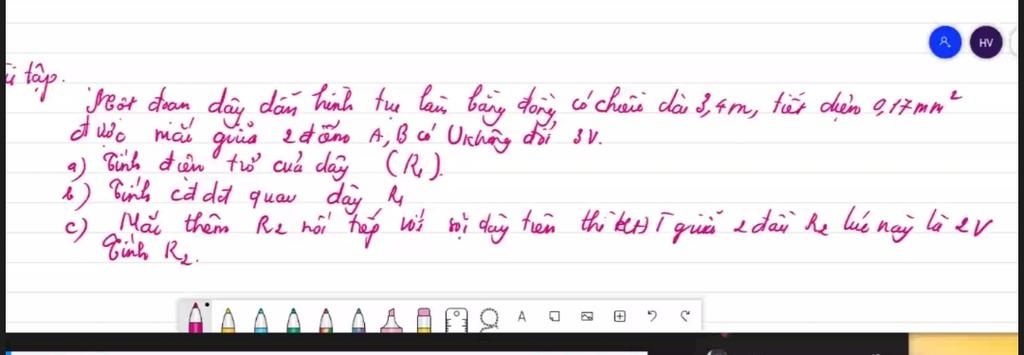 HV
tập.
Một đoạn dây dẫn hình trụ làm bằng đồng, có chiều dài 3,4m, tiết diện 0,17mm²
được mắc giữa 2 điểm A, B có U không đổi 3V.
a) Tính điện trở của dây (R₁).
b) Tính cđdđ qua dây R₁
c) Mắc thêm R₂ nối tiếp với sợi dây trên thì HĐT giữa 2 đầu R₂ lúc này là 2V
Tính R₂.
A